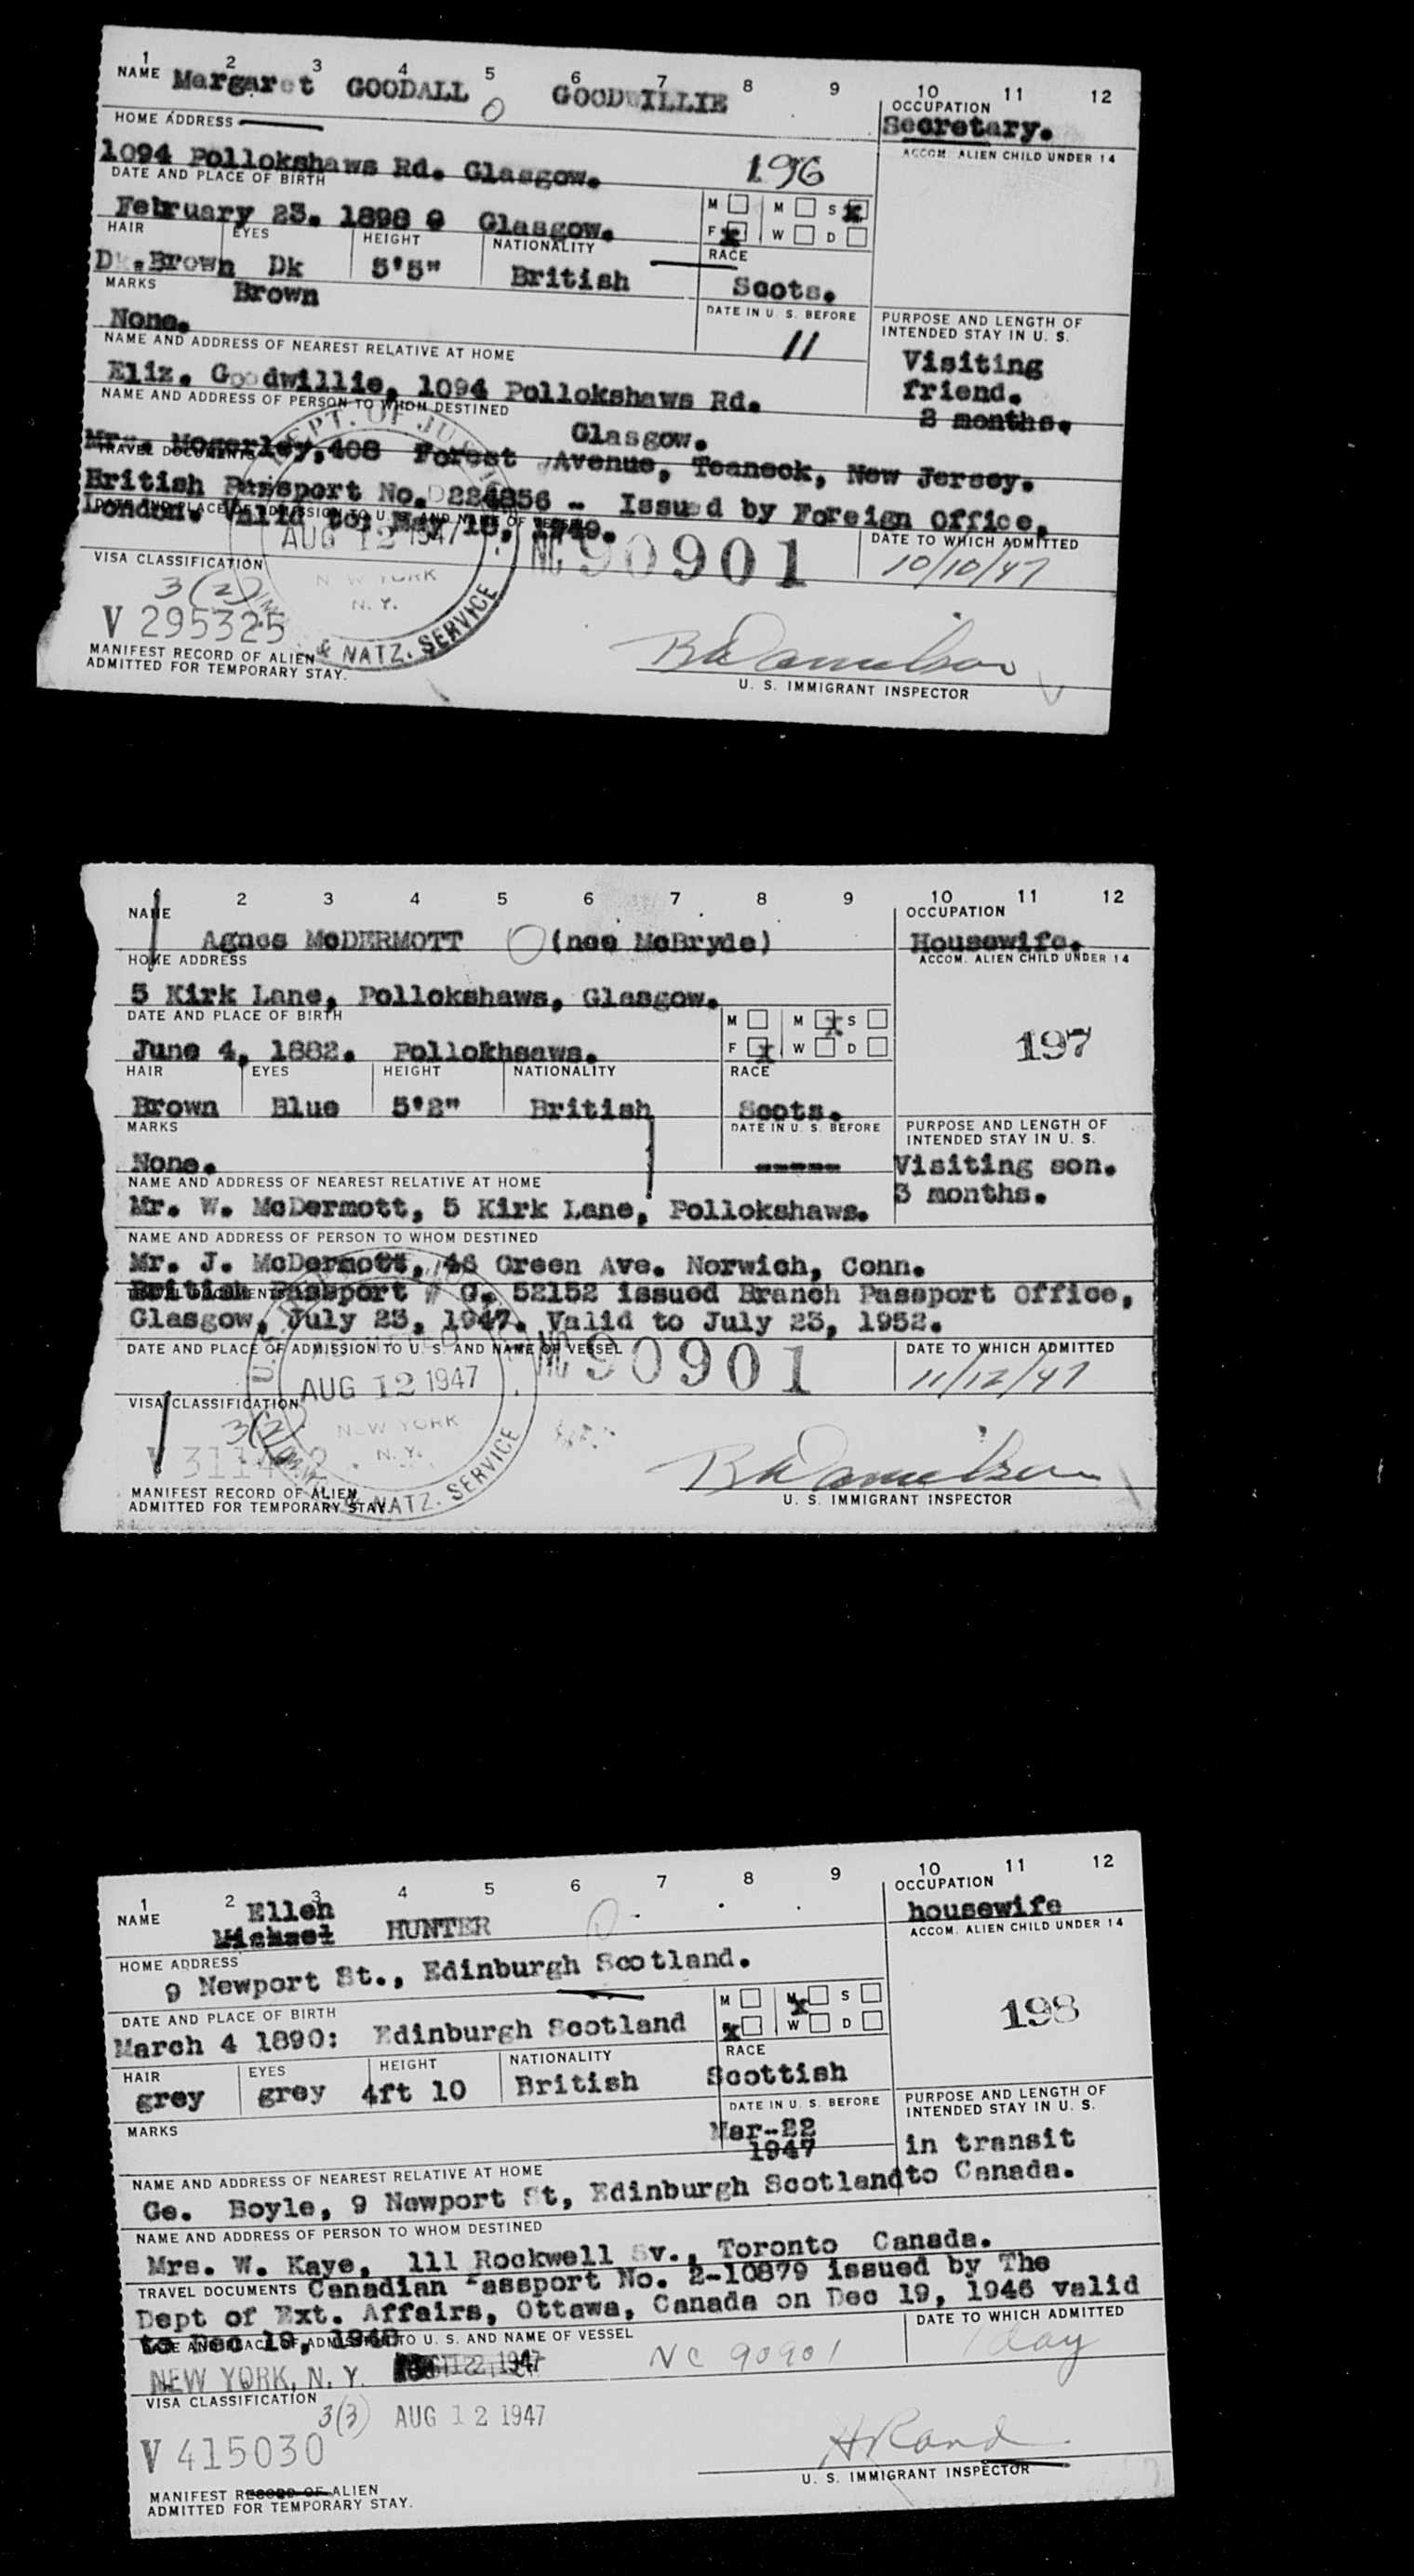 1 2 3 4 5 6 7 8 9 10 11 12
NAME Margaret GOODALL GOODWILLIE
OCCUPATION
Secretary.
HOME ADDRESS
ACCOM. ALIEN CHILD UNDER 14
1094 Pollokshaws Rd. Glasgow.
196
DATE AND PLACE OF BIRTH
February 23. 1898 Glasgow.
M M S x
F x W D
HAIR EYES HEIGHT NATIONALITY RACE
Dk.Brown Dk Brown 5'5" British Scots.
MARKS
None.
DATE IN U. S. BEFORE
11
PURPOSE AND LENGTH OF
INTENDED STAY IN U. S.
Visiting
friend.
2 months.
NAME AND ADDRESS OF NEAREST RELATIVE AT HOME
Eliz. Goodwillie, 1094 Pollokshaws Rd.
Glasgow.
NAME AND ADDRESS OF PERSON TO WHOM DESTINED
Mrs. Mogerley, 408 Forest Avenue, Teaneck, New Jersey.
TRAVEL DOCUMENTS
British Passport No. D 224856 - Issued by Foreign Office,
London. Valid to; May 15, 1949.
DATE AND PLACE OF ADMISSION TO U. S. AND NAME OF VESSEL
AUG 12 1947
NEW YORK
N. Y.
DEPT. OF JUSTICE
& NATZ. SERVICE
NC 90901
DATE TO WHICH ADMITTED
10/10/47
VISA CLASSIFICATION
3(2)
V 295325
MANIFEST RECORD OF ALIEN
ADMITTED FOR TEMPORARY STAY.
U. S. IMMIGRANT INSPECTOR
1 2 3 4 5 6 7 8 9 10 11 12
NAME
OCCUPATION
Agnes McDERMOTT (nee McBryde)
Housewife.
HOME ADDRESS
ACCOM. ALIEN CHILD UNDER 14
5 Kirk Lane, Pollokshaws, Glasgow.
DATE AND PLACE OF BIRTH
June 4, 1882. Pollokhsaws.
M M x S
F x W D
197
HAIR EYES HEIGHT NATIONALITY RACE
Brown Blue 5'2" British Scots.
MARKS
None.
DATE IN U. S. BEFORE
-----
PURPOSE AND LENGTH OF
INTENDED STAY IN U. S.
Visiting son.
3 months.
NAME AND ADDRESS OF NEAREST RELATIVE AT HOME
Mr. W. McDermott, 5 Kirk Lane, Pollokshaws.
NAME AND ADDRESS OF PERSON TO WHOM DESTINED
Mr. J. McDermott, 46 Green Ave. Norwich, Conn.
TRAVEL DOCUMENTS
British Passport # G. 52152 issued Branch Passport Office,
Glasgow, July 23, 1947. Valid to July 23, 1952.
DATE AND PLACE OF ADMISSION TO U. S. AND NAME OF VESSEL
AUG 12 1947
NEW YORK
N. Y.
NATZ. SERVICE
NC 90901
DATE TO WHICH ADMITTED
11/12/47
VISA CLASSIFICATION
3(2)
MANIFEST RECORD OF ALIEN
ADMITTED FOR TEMPORARY STAY.
U. S. IMMIGRANT INSPECTOR
1 2 3 4 5 6 7 8 9 10 11 12
NAME
OCCUPATION
Ellen
Michael HUNTER
housewife
HOME ADDRESS
ACCOM. ALIEN CHILD UNDER 14
9 Newport St., Edinburgh Scotland.
DATE AND PLACE OF BIRTH
March 4 1890: Edinburgh Scotland
M M x S
F x W D
198
HAIR EYES HEIGHT NATIONALITY RACE
grey grey 4ft 10 British Scottish
MARKS
DATE IN U. S. BEFORE
Mar-22
1947
PURPOSE AND LENGTH OF
INTENDED STAY IN U. S.
in transit
to Canada.
NAME AND ADDRESS OF NEAREST RELATIVE AT HOME
Ge. Boyle, 9 Newport St, Edinburgh Scotland
NAME AND ADDRESS OF PERSON TO WHOM DESTINED
Mrs. W. Kaye, 111 Rockwell Av., Toronto Canada.
TRAVEL DOCUMENTS Canadian Passport No. 2-10879 issued by The
Dept of Ext. Affairs, Ottawa, Canada on Dec 19, 1946 valid
to Dec 19, 1948
DATE AND PLACE OF ADMISSION TO U. S. AND NAME OF VESSEL
NEW YORK, N. Y.
NC 90901
DATE TO WHICH ADMITTED
1 day
VISA CLASSIFICATION
3(3) AUG 12 1947
V 415030
H Rand
MANIFEST RECORD OF ALIEN
ADMITTED FOR TEMPORARY STAY.
U. S. IMMIGRANT INSPECTOR